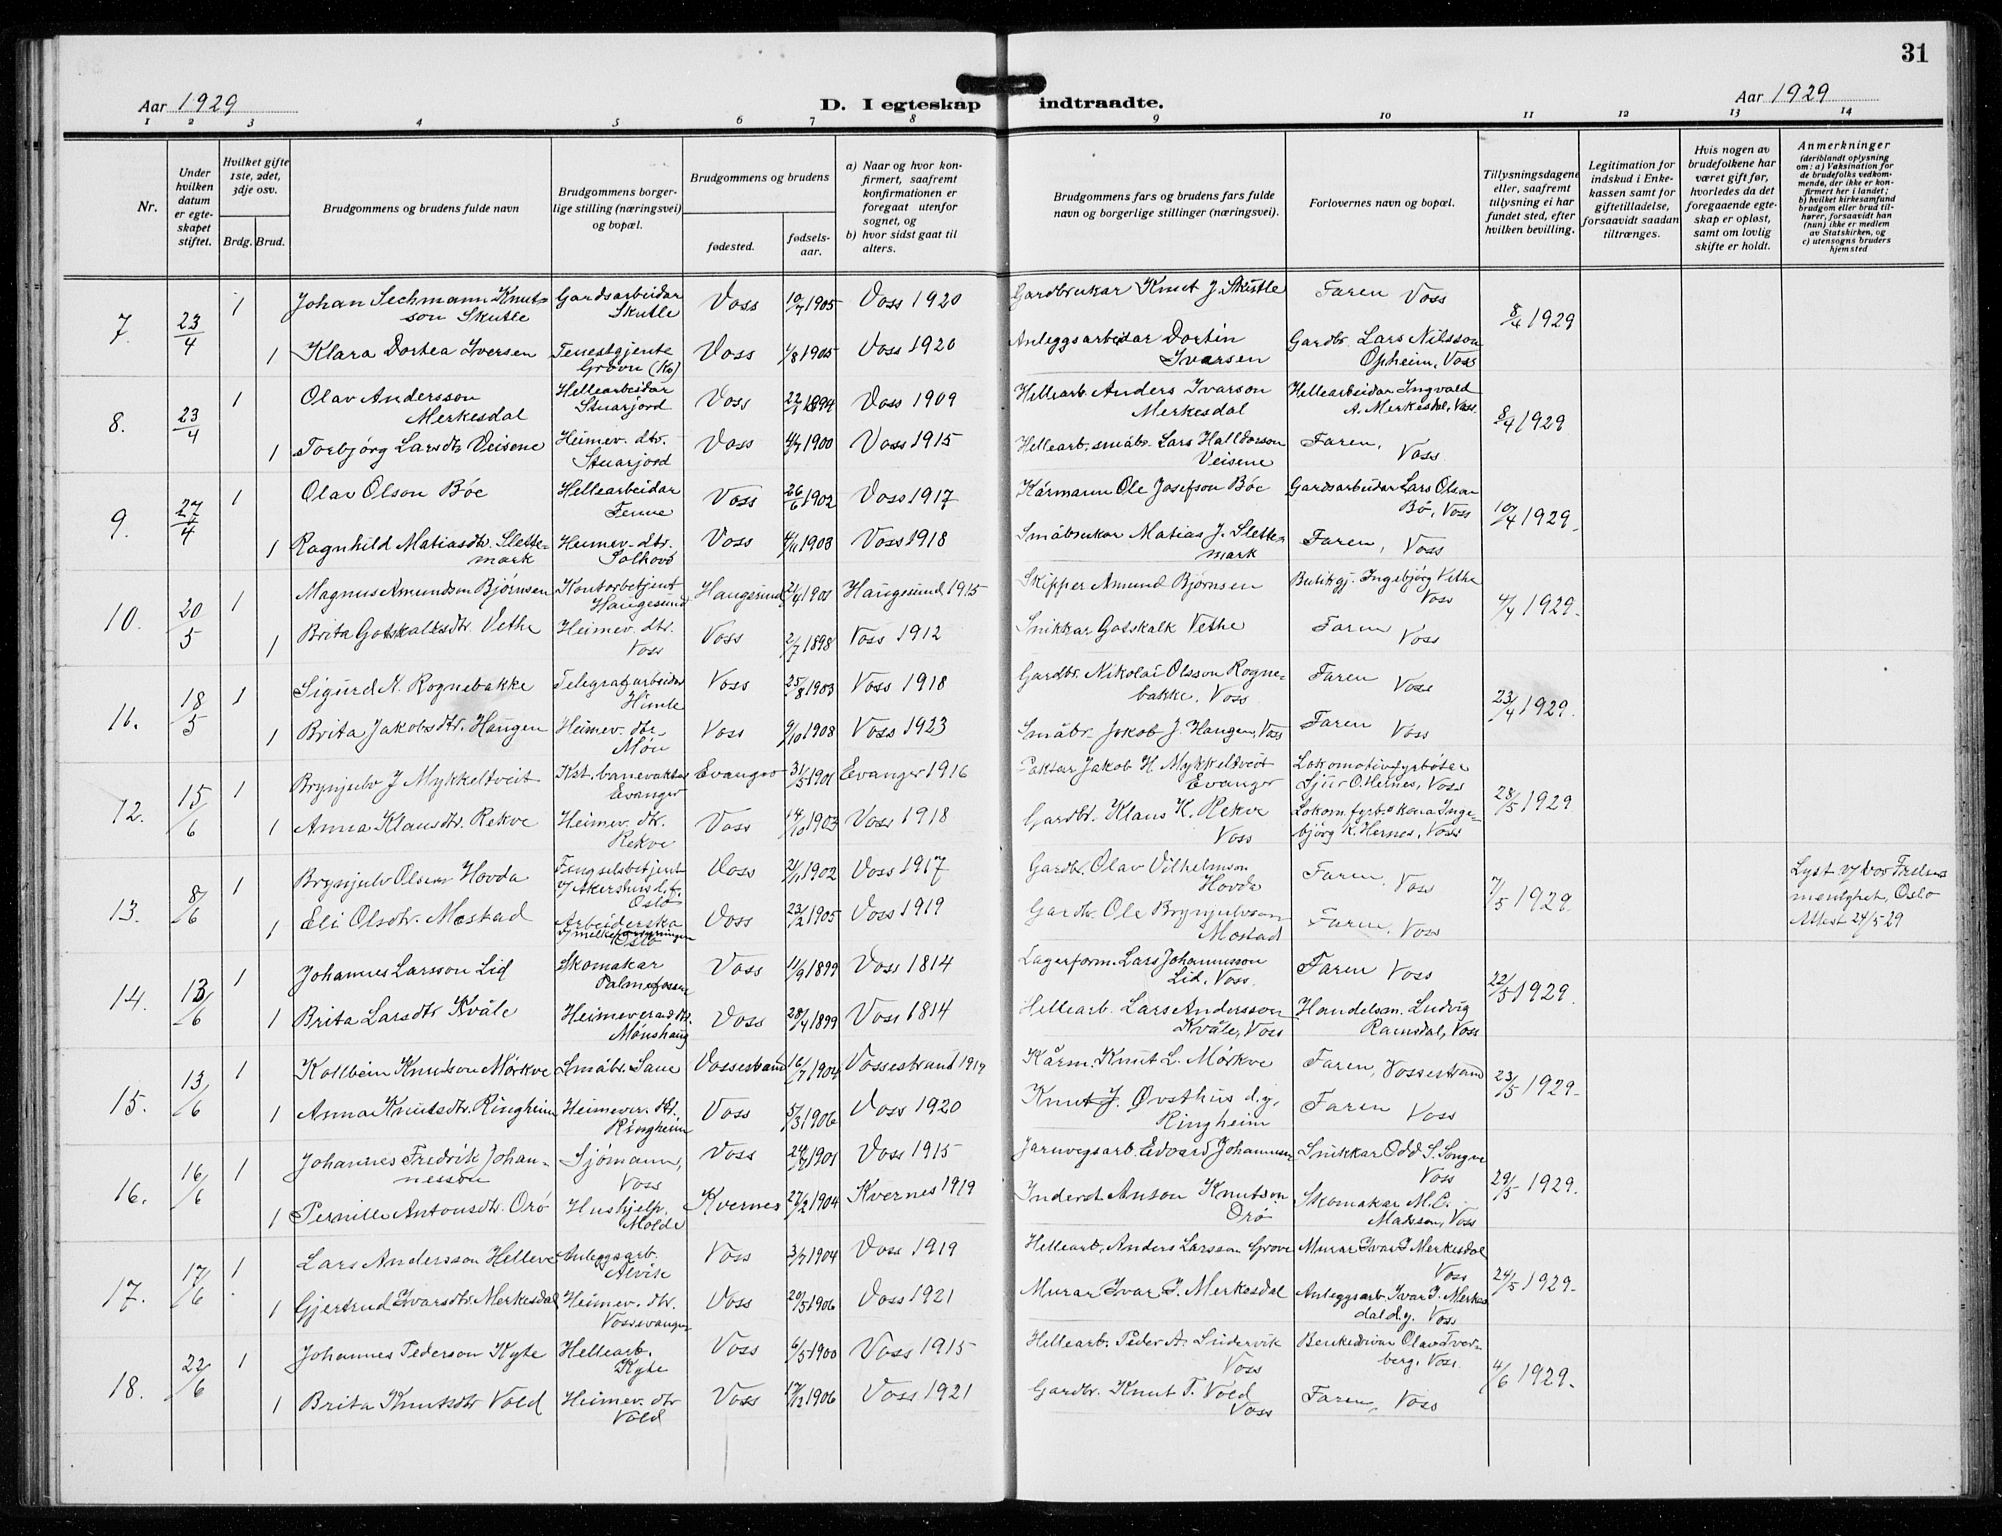 31
Aar 1929
D. I egteskap indtraadte.
Aar 1929
1 2 3 4 5 6 7 8 9 10 11 12 13 14
Nr.
Under hvilken datum er egteskapet stiftet.
Hvilket gifte 1ste, 2det, 3dje osv.
Brdg. Brud.
Brudgommens og brudens fulde navn
Brudgommens borgerlige stilling (næringsvei) og bopæl.
Brudgommens og brudens
fødested.
fødselsaar.
a) Naar og hvor konfirmert, saafremt konfirmationen er foregaat utenfor sognet, og
b) hvor sidst gaat til alters.
Brudgommens fars og brudens fars fulde navn og borgerlige stillinger (næringsvei).
Forlovernes navn og bopæl.
Tillysningsdagene eller, saafremt tillysning ei har fundet sted, efter hvilken bevilling.
Legitimation for indskud i Enkekassen samt for giftetilladelse, forsaavidt saadan tiltrænges.
Hvis nogen av brudefolkene har været gift før, hvorledes da det foregaaende egteskap er opløst, samt om lovlig skifte er holdt.
Anmerkninger
(deriblandt oplysning om: a) Vaksination for de brudefolks vedkommende, der ikke er konfirmert her i landet; b) hvilket kirkesamfund brudgom eller brud tilhører, forsaavidt han (hun) ikke er medlem av Statskirken, og c) utensogns bruders hjemsted
7. 23/4 1 Johan Sechmann Knutsson Skutle Gardsarbeidar Skutle Voss 10/7 1905 Voss 1920 Gardbrukar Knut J. Skutle Faren Voss 8/4 1929
1 Klara Dortea Iversen Tenestgjente Grovu Voss 1/8 1905 Voss 1920 Anleggsarbeidar Dortin Ivarsen Gardbr. Lars Nilsson Opheim, Voss
8. 23/4 1 Olav Andersson Merkesdal Hellearbeidar Stuarjord Voss 22/1 1894 Voss 1909 Hellearb. Anders Ivarson Merkesdal Hellearbeidar Ingvald A. Merkesdal, Voss 8/4 1929
1 Torbjørg Larsdtr Veisene Heimev. dtr. Stuarjord Voss 4/7 1900 Voss 1915 Hellearb. småbr. Lars Halldorson Veisene Faren, Voss
9. 27/4 1 Olav Olson Böe Hellearbeidar Tenne Voss 26/6 1902 Voss 1917 Kårmann Ole Josefson Böe Gardsarbeidar Lars Olson Bö, Voss 10/4 1929.
1 Ragnhild Matiasdtr. Slettemark Heimev. dtr. Voss 4/11 1903 Voss 1918 Småbrukar Matias J. Slettemark Faren, Voss
10. 20/5 1 Magnus Amundson Bjørnsen Kontorbetjent Haugesund Haugesund 21/4 1901 Haugesund 1915 Skipper Amund Bjørnsen Butikgj. Ingebjørg Vethe Voss 4/4 1929.
1 Brita Gotskalksdtr. Vethe Heimev. dtr. Voss Voss 2/7 1898 Voss 1912 Snikkar Gotskalk Vethe Faren Voss
11. 18/5 1 Sigurd N. Rognebakke Telegrafarbeidar Himle Voss 25/8 1903 Voss 1918 Gardbr. Nikolai Olsson Rognebakke, Voss Faren Voss 23/4 1929.
1 Brita Jakobsdtr. Haugen Heimev. dtr. Møn Voss 9/10 1908 Voss 1923 Småbr. Jakob J. Haugen, Voss Faren Voss
12. 15/6 1 Brynjulv J Mykkeltveit Kst. banevaktar Evanger Evanger 31/5 1901 Evanger 1916 Jakob H Mykkeltveit Evanger Lokomotivfyrbøtar Sjur O Hernes, Voss 28/5 1929
1 Anna Klausdtr. Rekve Heimev. dtr. Rekve Voss 14/10 1903 Voss 1918 Gardbr. Klaus K. Rekve Voss Lokom. fyrb. kona Ingebjørg K. Hernes, Voss
13. 8/6 1 Brynjulv Olsen Hovda Fengselsbetjent v/ Akershus l.f. Oslo Voss 2/11 1902 Voss 1917 Gardbr. Olav Vilhelmson Hovda Faren, Voss 7/5 1929 Lyst v/ Vor Frelsers menighet, Oslo Attest 24/5 29
1 Eli Olsdtr. Mostad Arbeiderska v/ melkeforsyningen Oslo Voss 23/2 1905 Voss 1919 Gardbr. Ole Brynjulvson Mostad Faren, Voss
14. 13/6 1 Johannes Larsson Lid Skomakar Palmafossen Voss 11/9 1899 Voss 1814 Lagerform. Lars Johannesson Lid, Voss. Faren Voss 22/5 1929.
1 Brita Larsdtr Kvåle Heimeverad dtr. Mønshaug Voss 28/4 1899 Voss 1814 Hellearb. Lars Andersson Kvåle, Voss Handelsm. Ludvig Ramsdal, Voss
15. 13/6 1 Kollbein Knutson Mørkve Småbr. Saue Vossestrand 16/7 1904 Vossestrand 1919 Kårm. Knut L. Mørkve Faren, Vossestrand 23/5 1929.
1 Anna Knutsdtr. Ringheim Heimever. dtr. Ringheim Voss 5/3 1906 Voss 1920 Knut J. Øvsthus d.y. Ringheim Faren Voss
16. 16/6 1 Johannes Fredrik Johannesson Sjømann, Voss Voss 1901 Voss 1915 Jarnvegsarb. Edvard Johannesen Snikkar Odd S. Songve Voss 29/5 1929.
1 Pernille Antonsdtr. Orø Hushjelp. Molde Kvernes 27/2 1904 Kvernes 1919 Inderst Anton Knutson Orø Skomakar M. C. Madsson, Voss
17. 17/6 1 Lars Andersson Helleve Anleggsarb. Alvik Voss 3/7 1904 Voss 1919 Hellearb. Anders Larsson Grove Murar Ivar I Merkesdal Voss 24/5 1929.
1 Gjertrud Ivarsdtr. Merkesdal Heimev. dtr. Vossevangen Voss 20/5 1906 Voss 1921 Murar Ivar I. Merkesdal Anleggsarb. Ivar I. Merkesdal d.y. Voss
18. 22/6 1 Johannes Pederson Kyte Hellearb. Kyte Voss 6/5 1900 Voss 1915 Hellearb. Peder A. Sudervik Voss Olav Tverberg. Voss. 4/6 1929.
1 Brita Knutsdtr Vold Heimev. dtr Vold Voss 17/12 1906 Voss 1921 Gardbr. Knut T. Vold Voss Faren, Voss